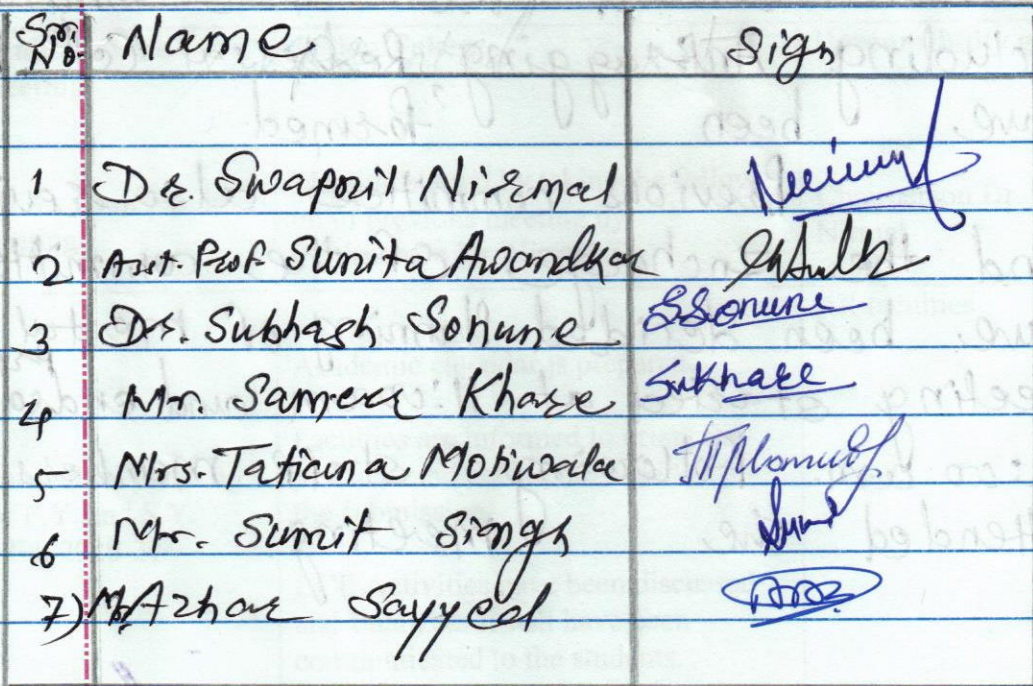 Sr. No. Name Sign
1 Dr. Swapnil Nirmal
2 Asst. Prof. Sunita Awandkar
3 Dr. Subhash Sonune SSonune
4 Mr. Sameer Khare SuKhare
5 Mrs. Tatiana Motiwala
6 Mr. Sumit Singh
7) Mr. Azhar Sayyed